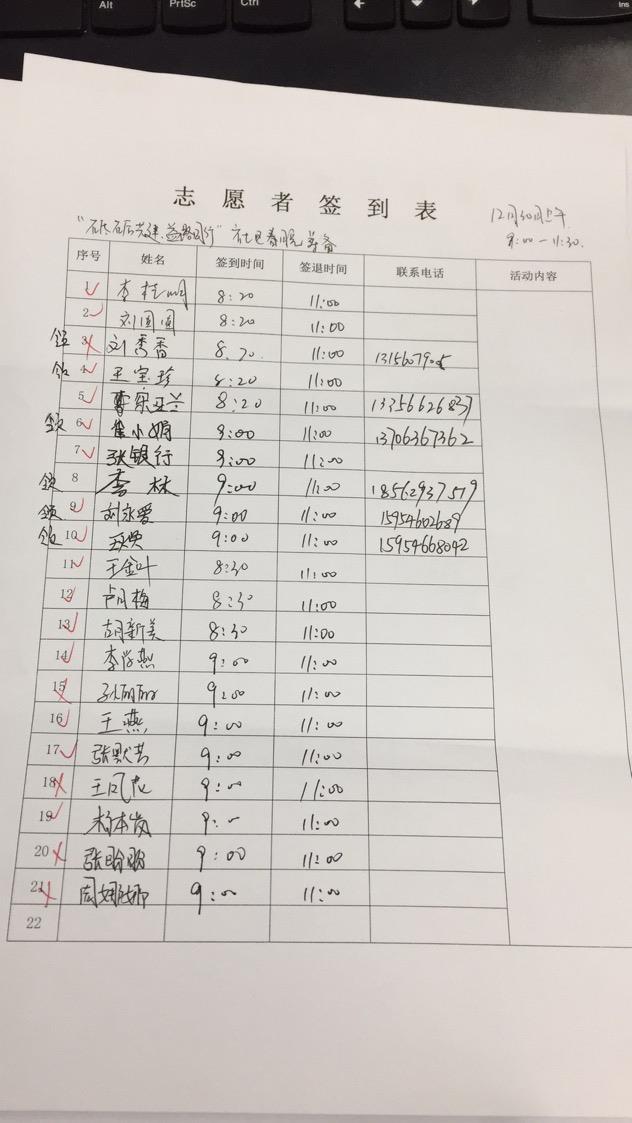 Alt PrtSc Ctrl Ins
志愿者签到表
12月30日上午
9:00-11:30.
社区春晚筹备
序号 姓名 签到时间 签退时间 联系电话 活动内容
1 李桂明 8:20 11:00
2 刘圆圆 8:20 11:00
领 3 刘秀香 8:20 11:00
领 4 王宝珍 8:20 11:00
5 8:20 11:00 13356626837
领 6 崔小娟 9:00 11:00 13706367362
7 张银行 9:00 11:00
领 8 李林 9:00 11:00 18562937579
领 9 刘永爱 9:00 11:00 15954602689
领 10 9:00 11:00 15954668042
11 王金叶 8:30 11:00
12 卢月梅 8:30 11:00
13 胡新美 8:30 11:00
14 李学燕 9:00 11:00
15 孙丽丽 9:00 11:00
16 王燕 9:00 11:00
17 张默芸 9:00 11:00
18 9:00 11:00
19 9:00 11:00
20 张盼盼 9:00 11:00
21 周娜娜 9:00 11:00
22